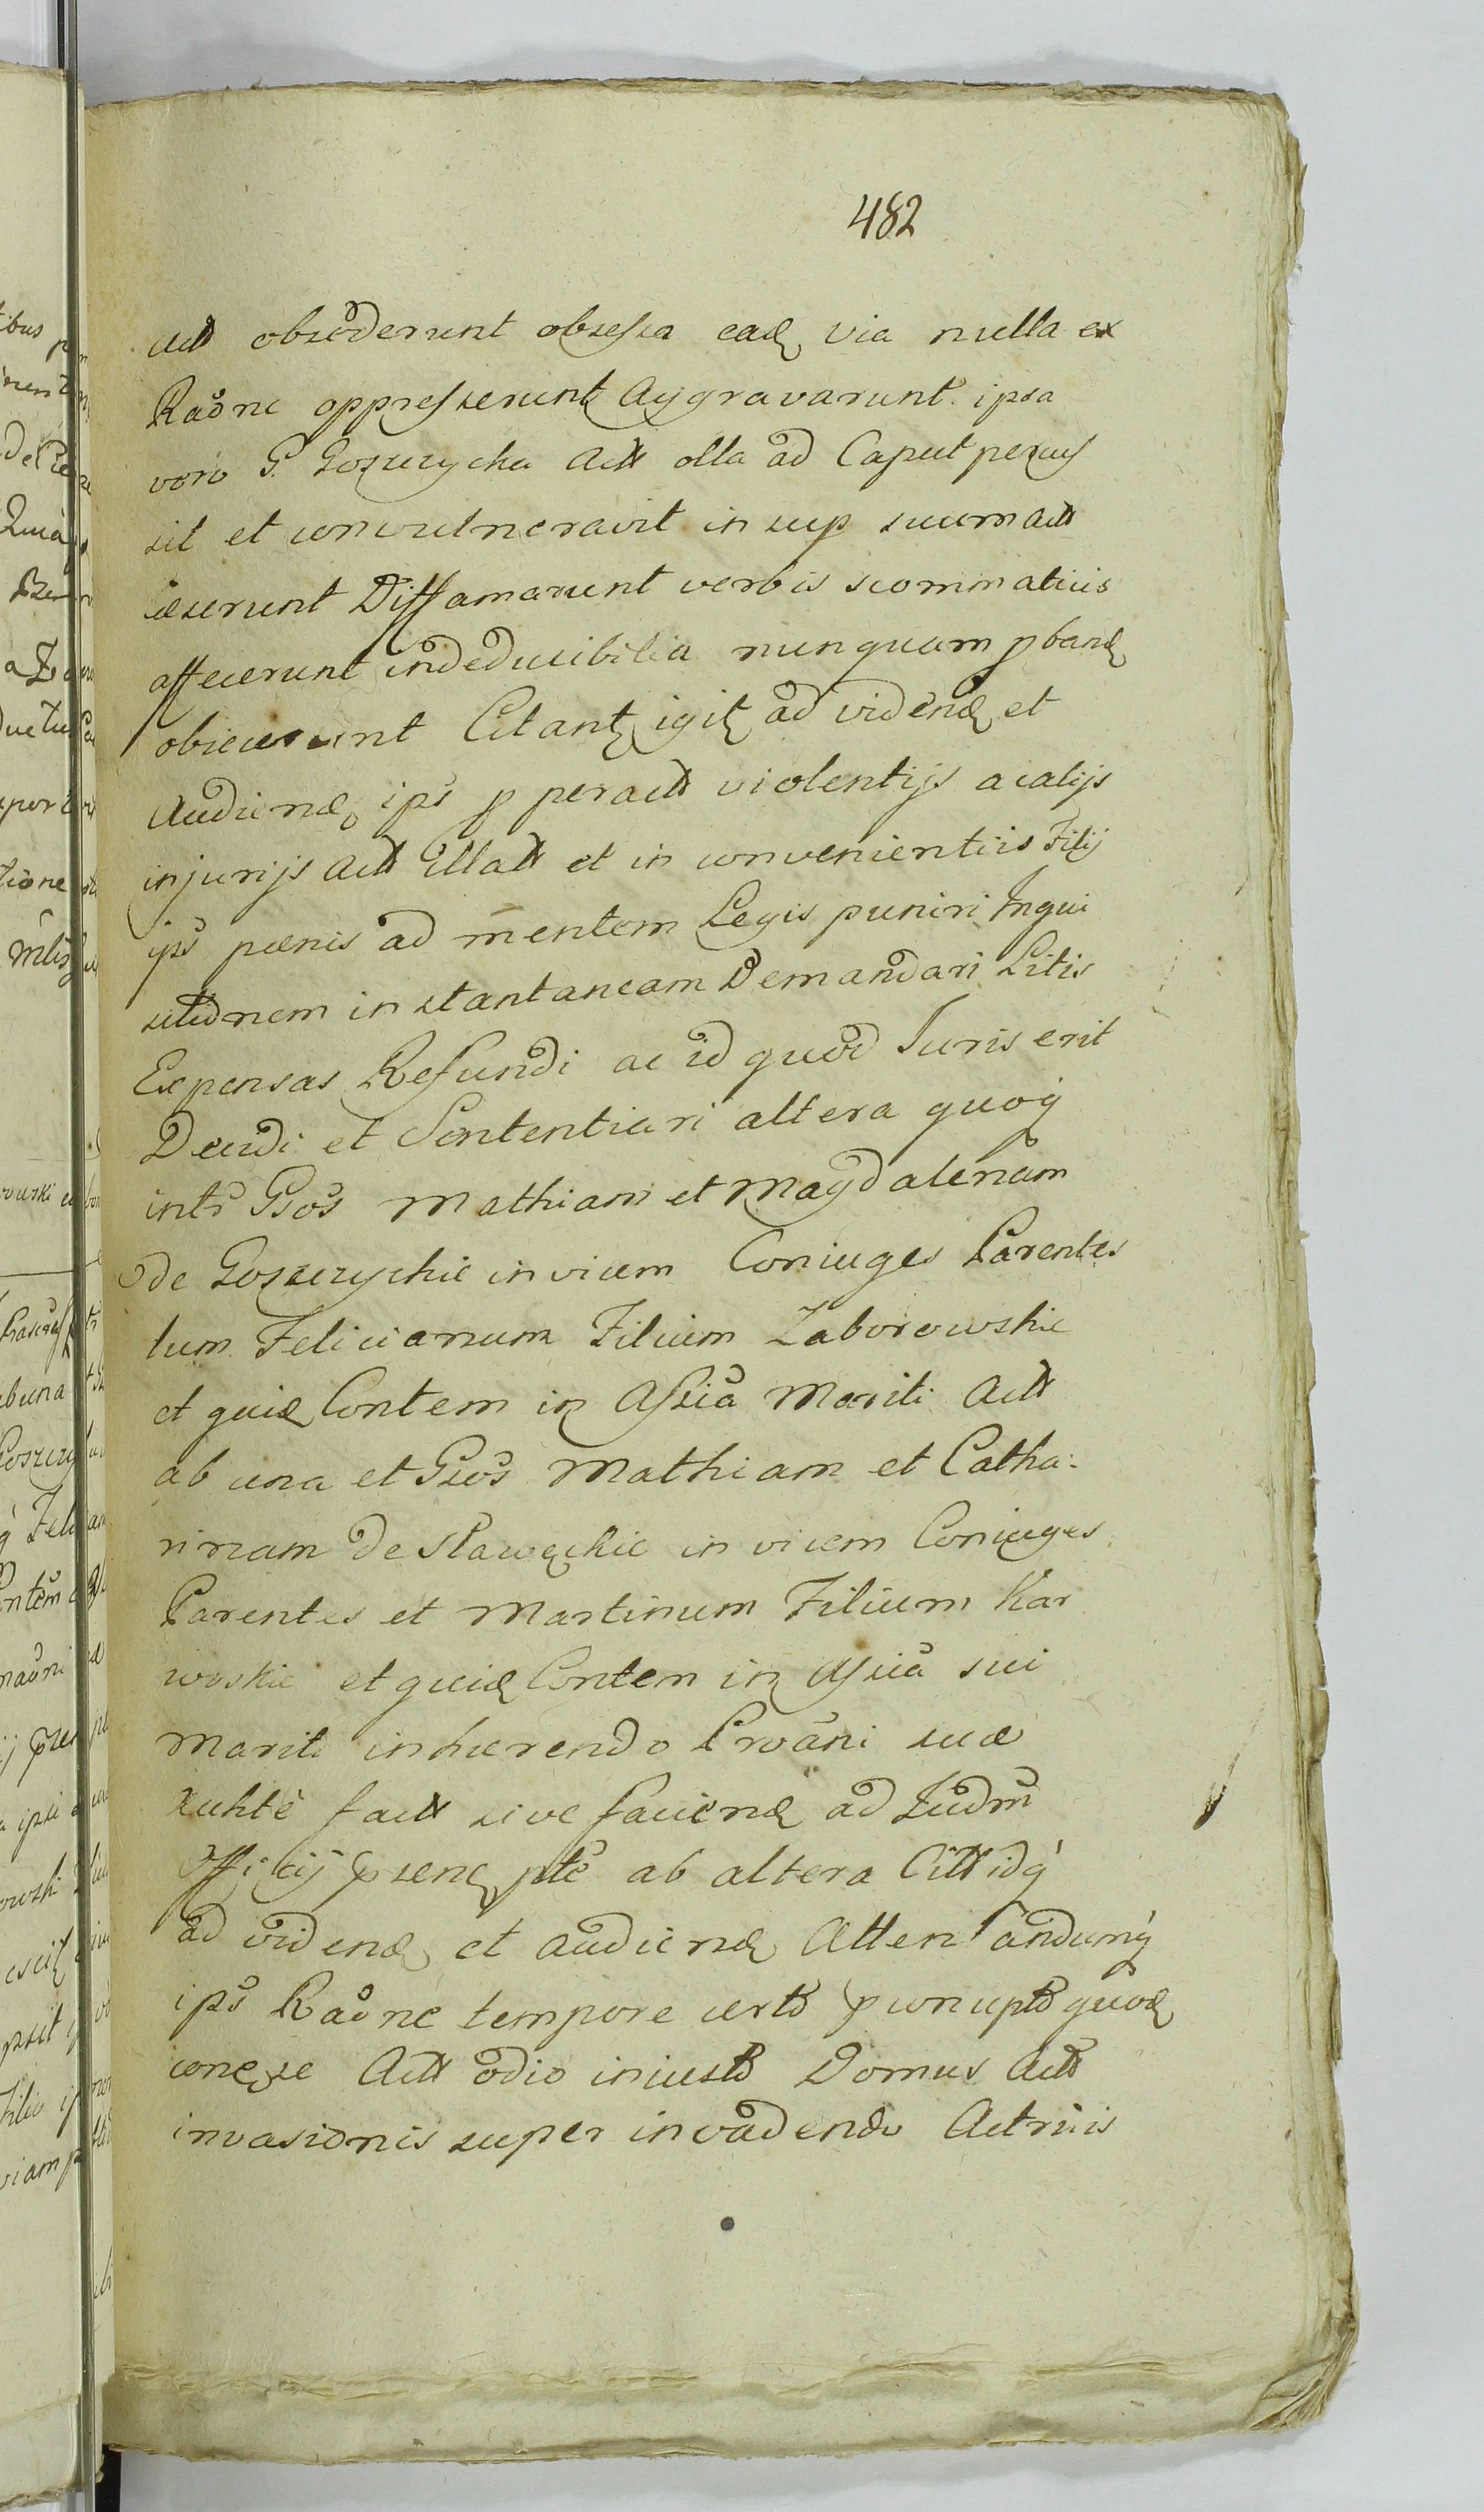 482
Act obsederunt obsessa eadȩ via nulla ex
Raõne oppresserunt Aggravarunt ipsa
vero G. Goszczycka Actt olla ad Caput percus
sit et convulneravit insup suum actt
læserunt Diffamarunt verbis scommaticis
affecerunt indeducibilia nunquam pbanđ
obiecerunt Citantȩ igitȩ ad videnđ et
Audienđ ips̃ p peractt violentijs ac alijs
injurijs Actt illatt et inconvenientiis Filij
ips̃ pænis ad mentem Legis puniri Inqui
sitionem instantaneam Demandari Litis
Expensas Refundi ac id quod Juris erit
Decidi et Sententiari altera quoq
intr̃ Gsos̃ Mathiam et Magdalenam
de Goszczyckie invicem Coniuges Parentes
tum Felicianum Filium Zaborowskie
et quidȩ Contem in Assia Mariti Actt
ab una et Gsos̃ Mathiam et Catha:
rinam de Sławęckie invicem Coniuges
Parentes et Martinum Filium Kar
woskie et quidȩ Contem in Assia sui
Mariti inhærendo Prvãni suæ
factt sive faciendȩ ad Judm̃
Officij psenȩ pte ab altera Citt idq
ad videndȩ et audiendȩ Attentandumq
ips̃ Raõne tempore certo quodȩ
Actt odio iniusto Domus Actt
invasionis super invadendo Actricis